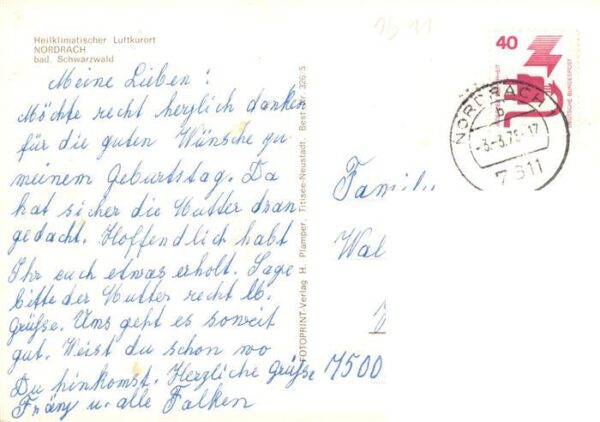 Heilklimatischer Luftkurort
NORDRACH
bad. Schwarzwald
Meine Lieben!
Möchte recht herzlich danken
für die guten Wünsche zu
meinem Geburtstag. Da
hat sicher die Mutter dran
gedacht. Hoffendlich habt
Ihr euch etwas erholt. Sage
bitte der Mutter recht lb.
Grüße. Uns geht es soweit
gut. Weist du schon wo
Du hinkomst. Herzliche Grüße
u. alle Falken
FOTOPRINT-Verlag H. Plamper, Titisee-Neustadt, Best. Nr. 326/5
15 11
40
DEUTSCHE BUNDESPOST
NORDRACH
b
7611
Famili
Wal
7500